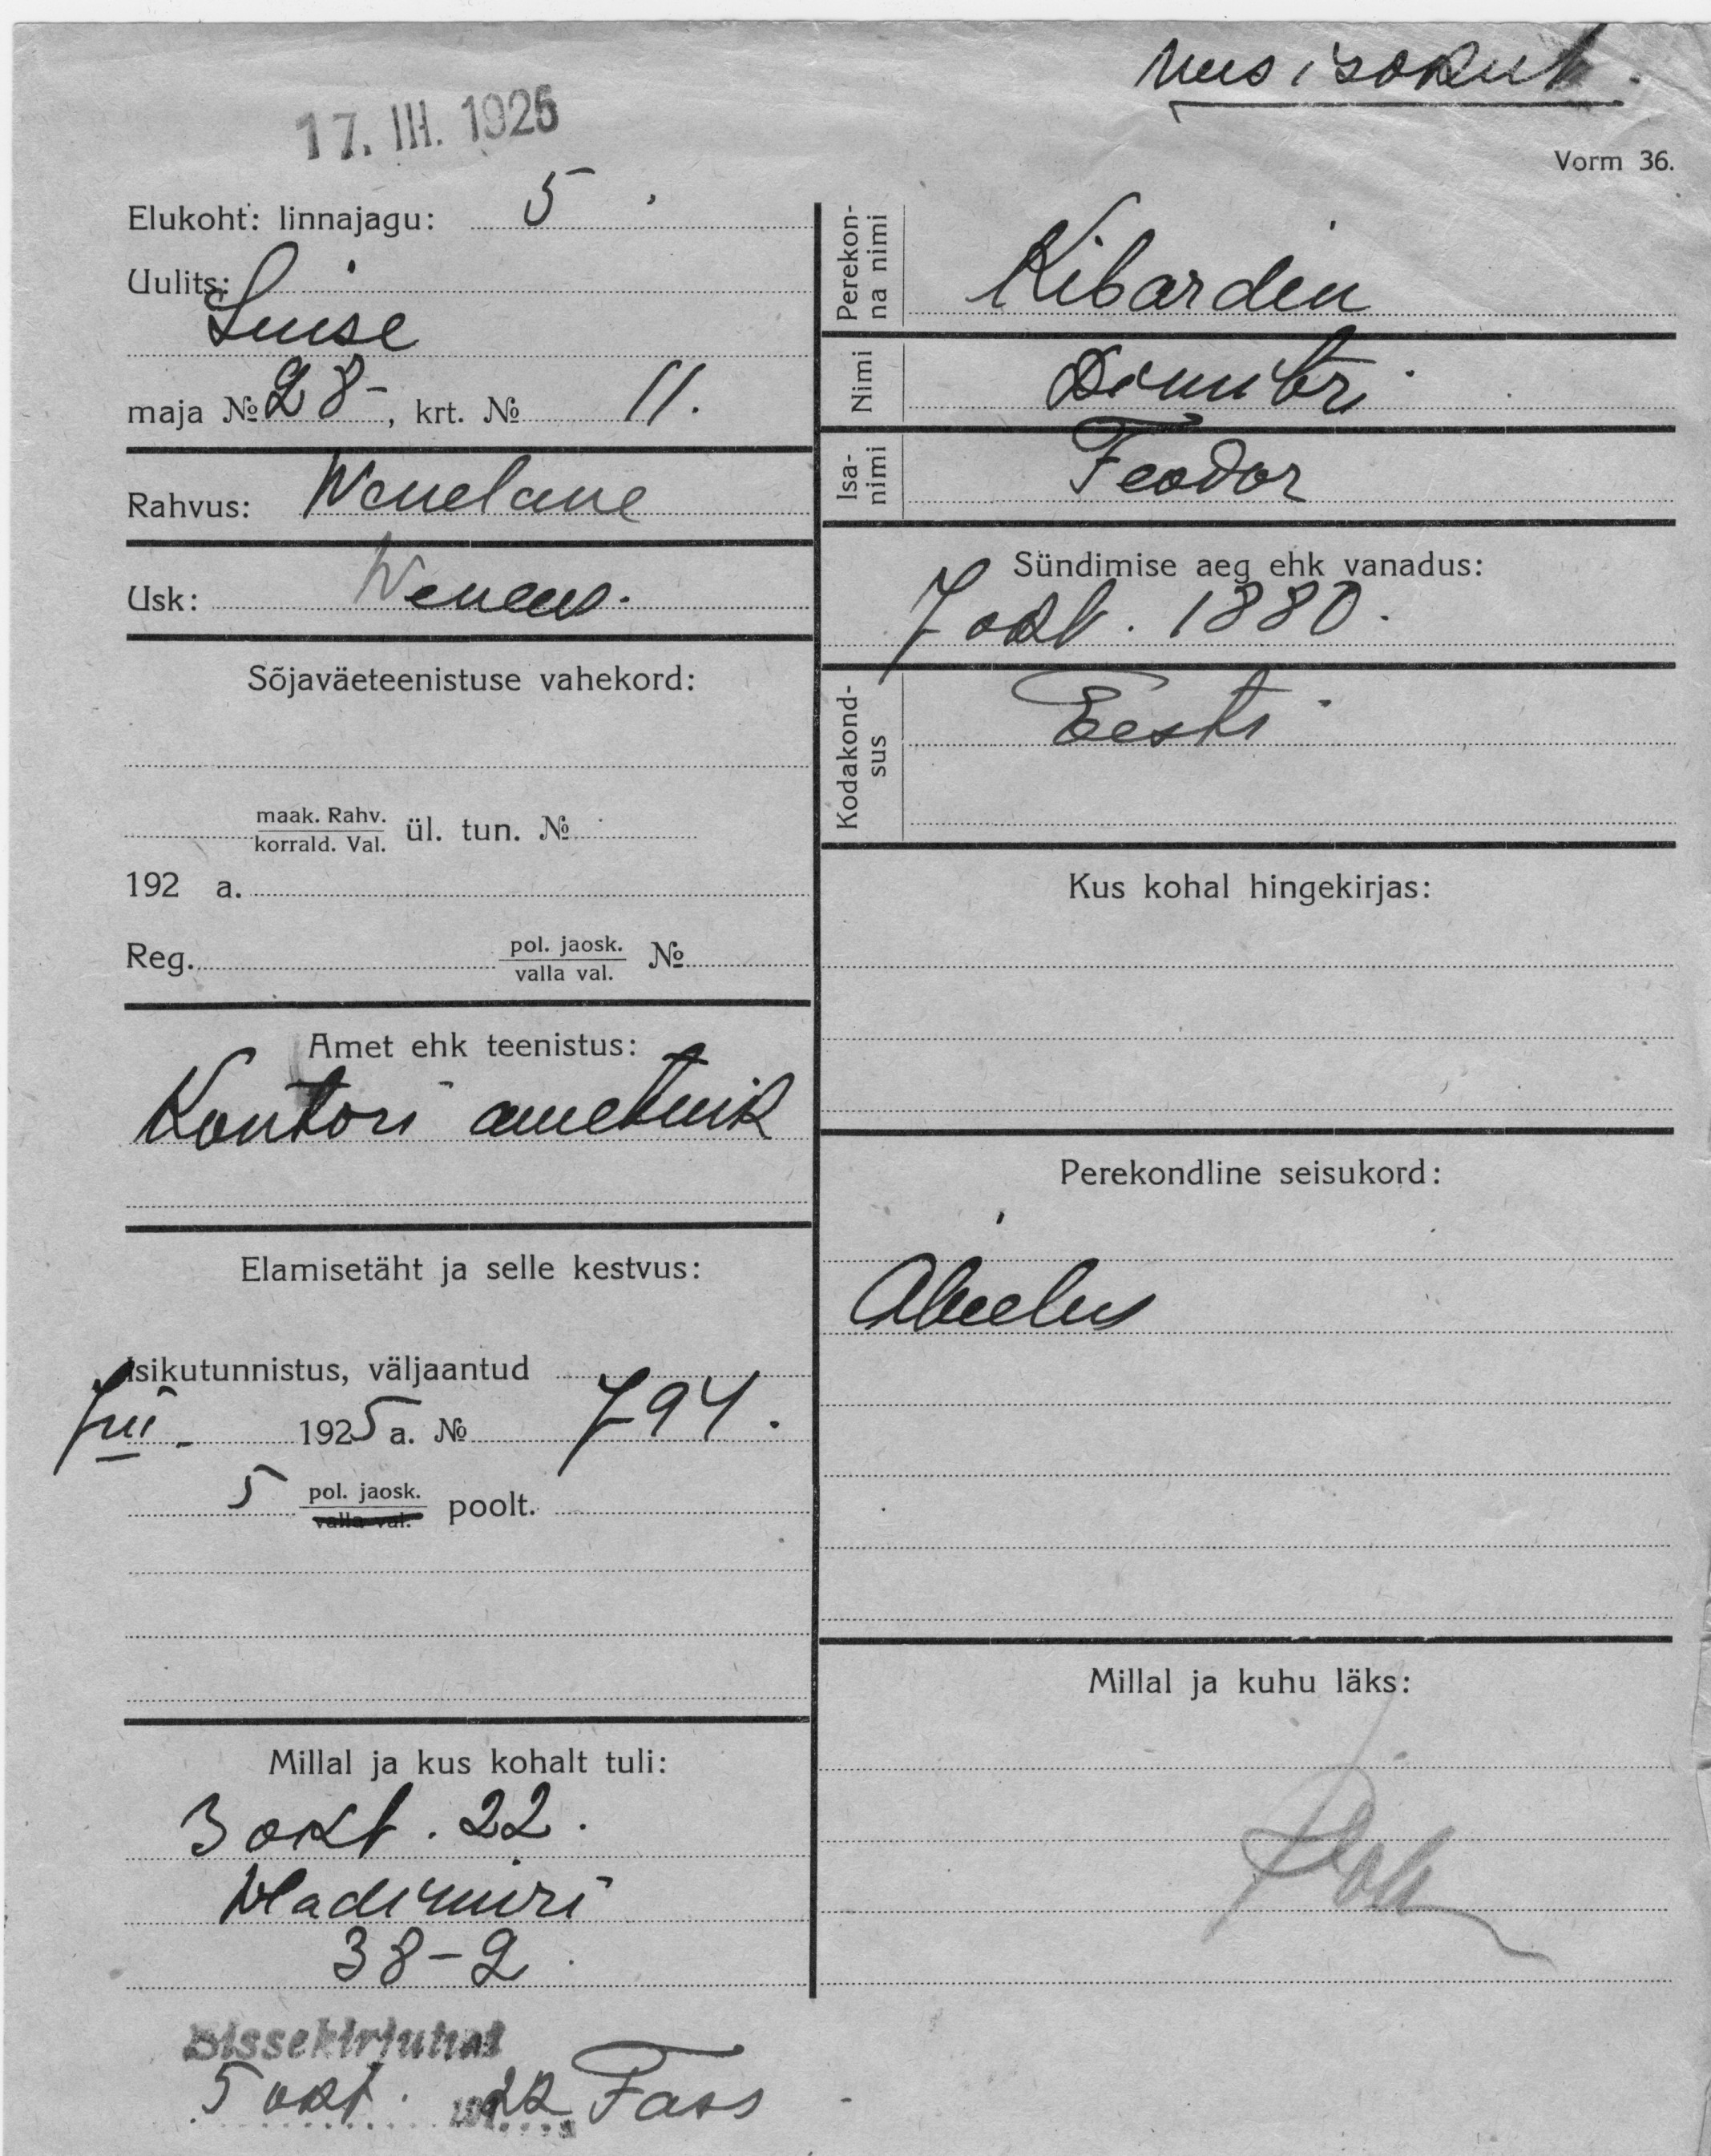 uus isokut.
17. III. 1925
Vorm 36.
Elukoht: linnajagu: 5
Uulits:
Luise
maja № 28-, krt. № 11.
Rahvus: Wenelane
Usk: Weneus.
Sõjaväeteenistuse vahekord:
maak. Rahv.
korrald. Val. ül. tun. №
192 a.
Reg. pol. jaosk.
valla val. №
Amet ehk teenistus:
Kontori ametnik
Elamisetäht ja selle kestvus:
Isikutunnistus, väljaantud
7 III - 1925 a. № 794.
5 pol. jaosk.
valla val. poolt.
Millal ja kus kohalt tuli:
3 okt. 22.
Wladimiri
38-2
Sissekirjutud
5 okt. 22 Fass
Perekon-
na nimi Kibardin
Nimi Dimitri
Isa-
nimi Feodor
Sündimise aeg ehk vanadus:
7 okt. 1880.
Kodakond-
sus Eesti
Kus kohal hingekirjas:
Perekondline seisukord:
Abielus
Millal ja kuhu läks: